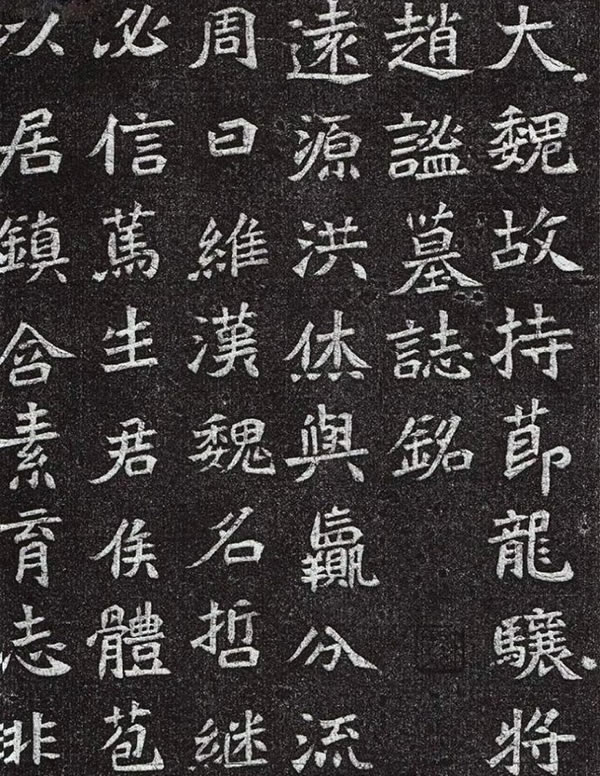 大魏故持莭龍驤將
趙謐墓誌銘
遠源洪烋與嬴分流
周曰維漢魏名哲継
必信䔍生君侯體苞
以居鎮含素育志非